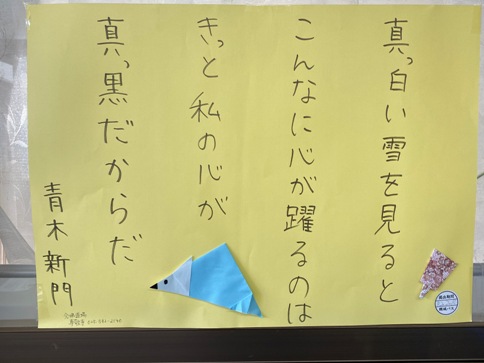 真っ白い雪を見ると
こんなに心が躍るのは
きっと私の心が
真っ黒だからだ
青木新門